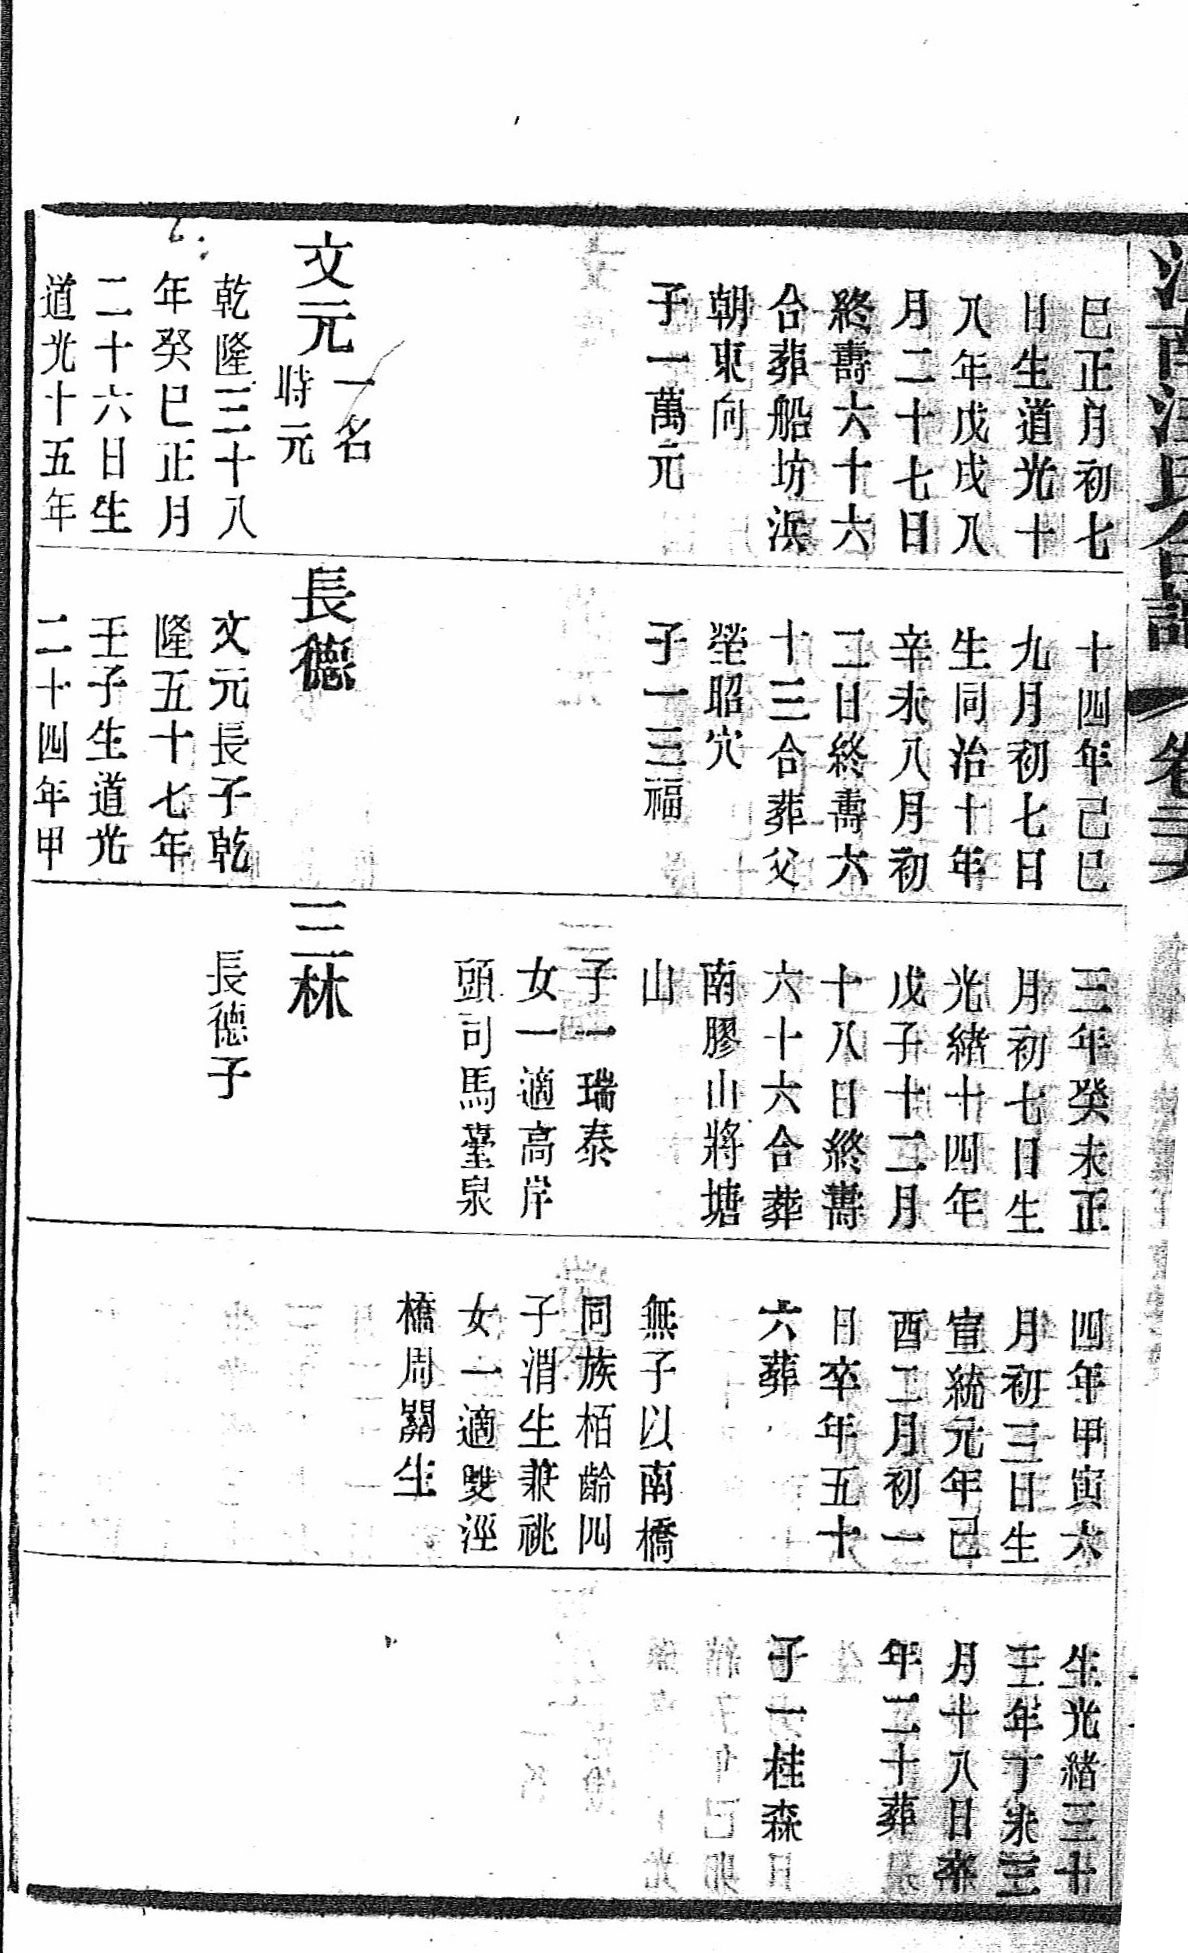 巳正月初七
日生道光十
八年戊戌八
月二十七日
終壽六十六
合葬船坊浜
朝東向
子一萬元
文元
一名
時元
乾隆三十八
年癸巳正月
二十六日生
道光十五年
十四年己巳
九月初七日
生同治十年
辛未八月初
二日終壽六
十三合葬父
塋昭穴
子一三福
長德
文元長子乾
隆五十七年
壬子生道光
二十四年甲
三年癸未正
月初七日生
光緒十四年
戊子十二月
十八日終壽
六十六合葬
南膠山將塘
山
子一瑞泰
女一適高岸
頭司馬臺泉
三林
長德子
四年甲寅六
月初三日生
宣統元年己
酉二月初一
日卒年五十
六葬
無子以南橋
同族栢齡四
子渭生兼祧
女一適雙涇
橋周關生
生光緒三十
三年丁未三
月十八日卒
年二十葬
子一桂森